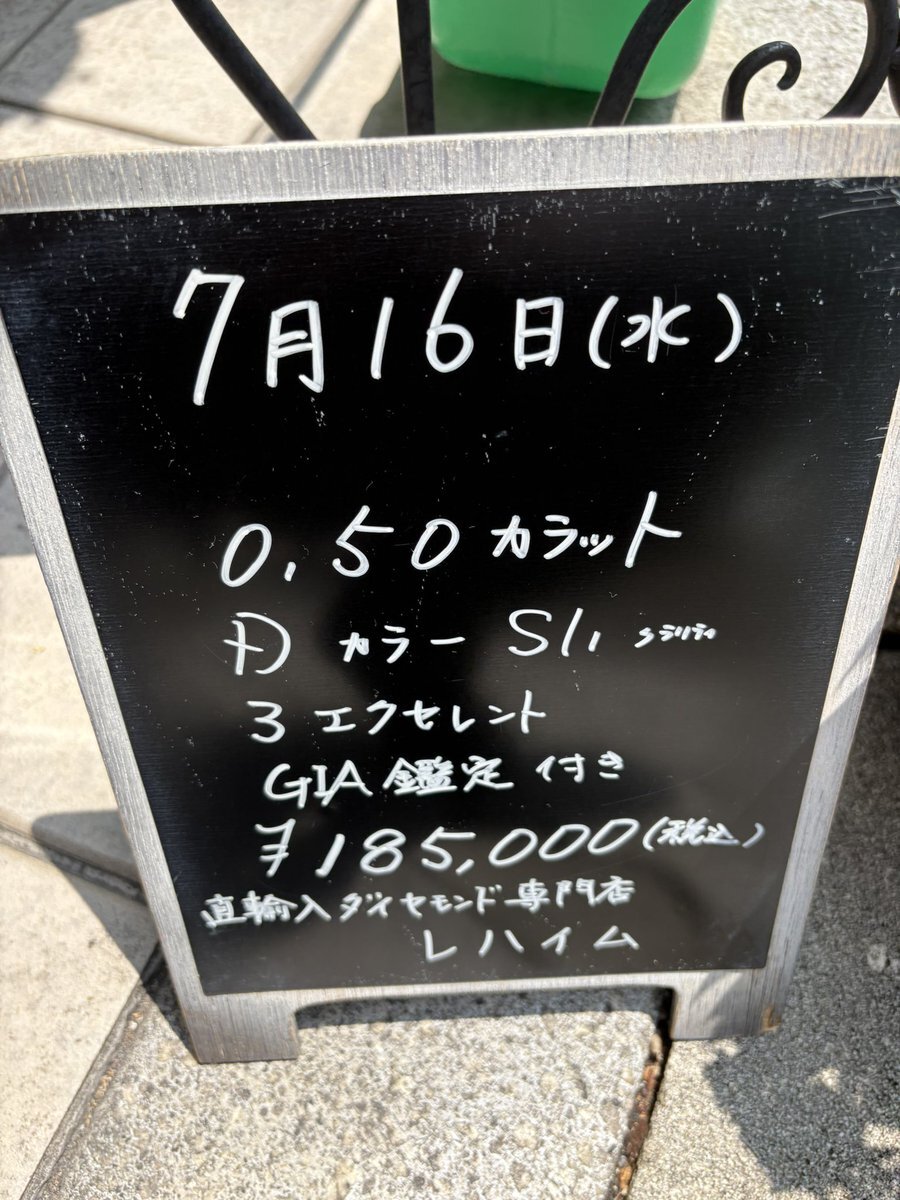 7月16日(水)
0.50カラット
Dカラー SI1 クラリティ
3エクセレント
GIA鑑定付き
¥185,000(税込)
直輸入ダイヤモンド専門店
レハイム